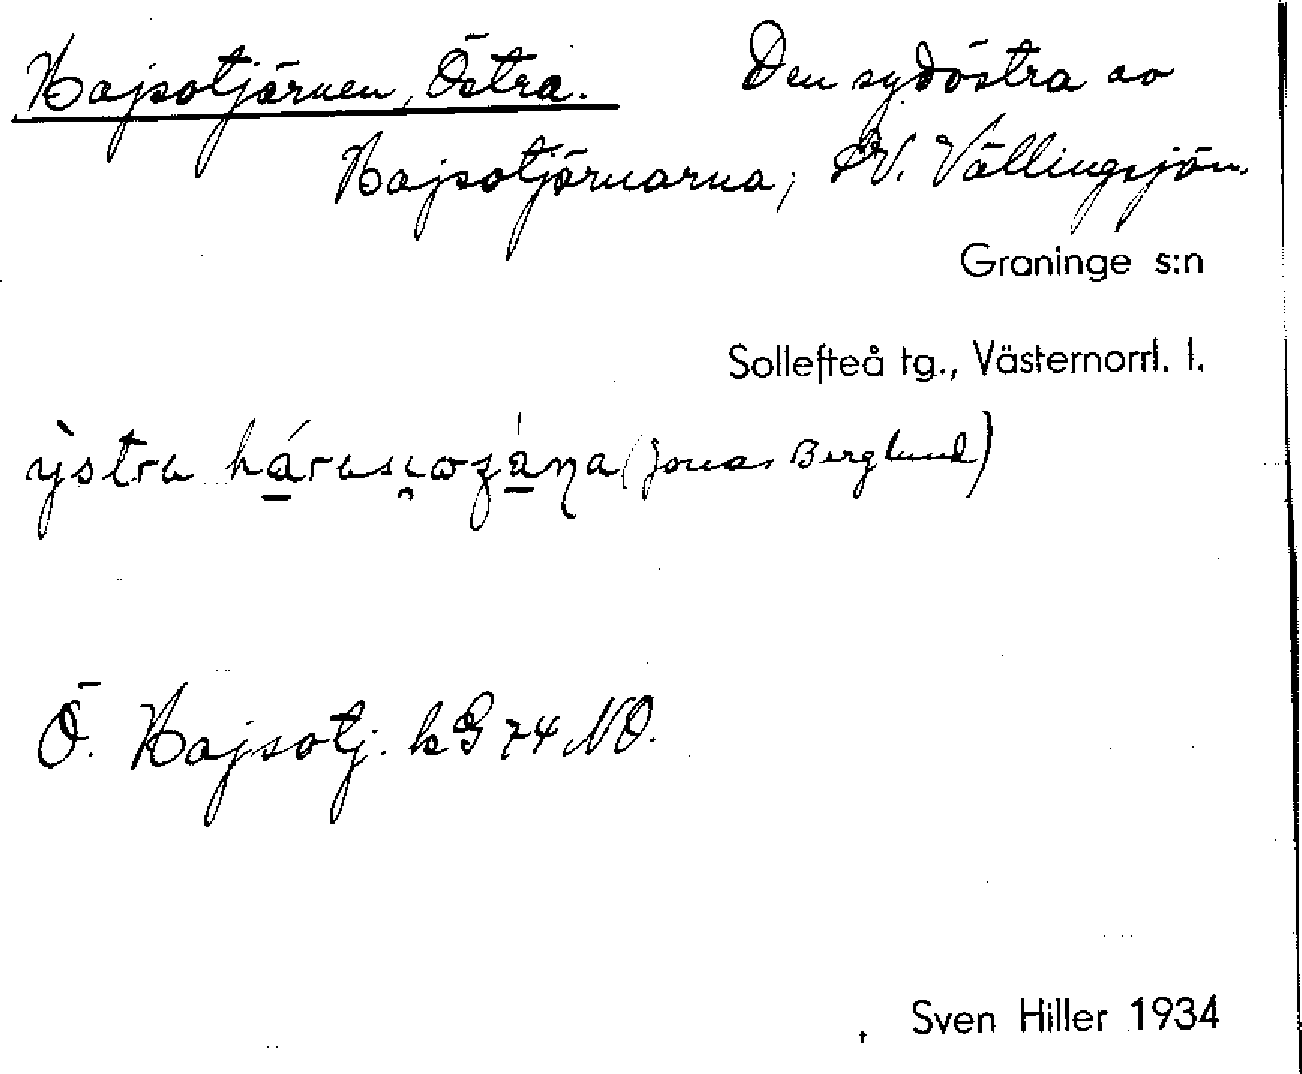 Hajsotjärnen, Östra. Den sydöstra av
Hajsotjärnarna, V. Vällingsjön.
Graninge s:n
Sollefteå tg., Västernorrl. l.
(Jonas Berglund)
Ö. Hajsotj. kG 74 NO.
Sven Hiller 1934